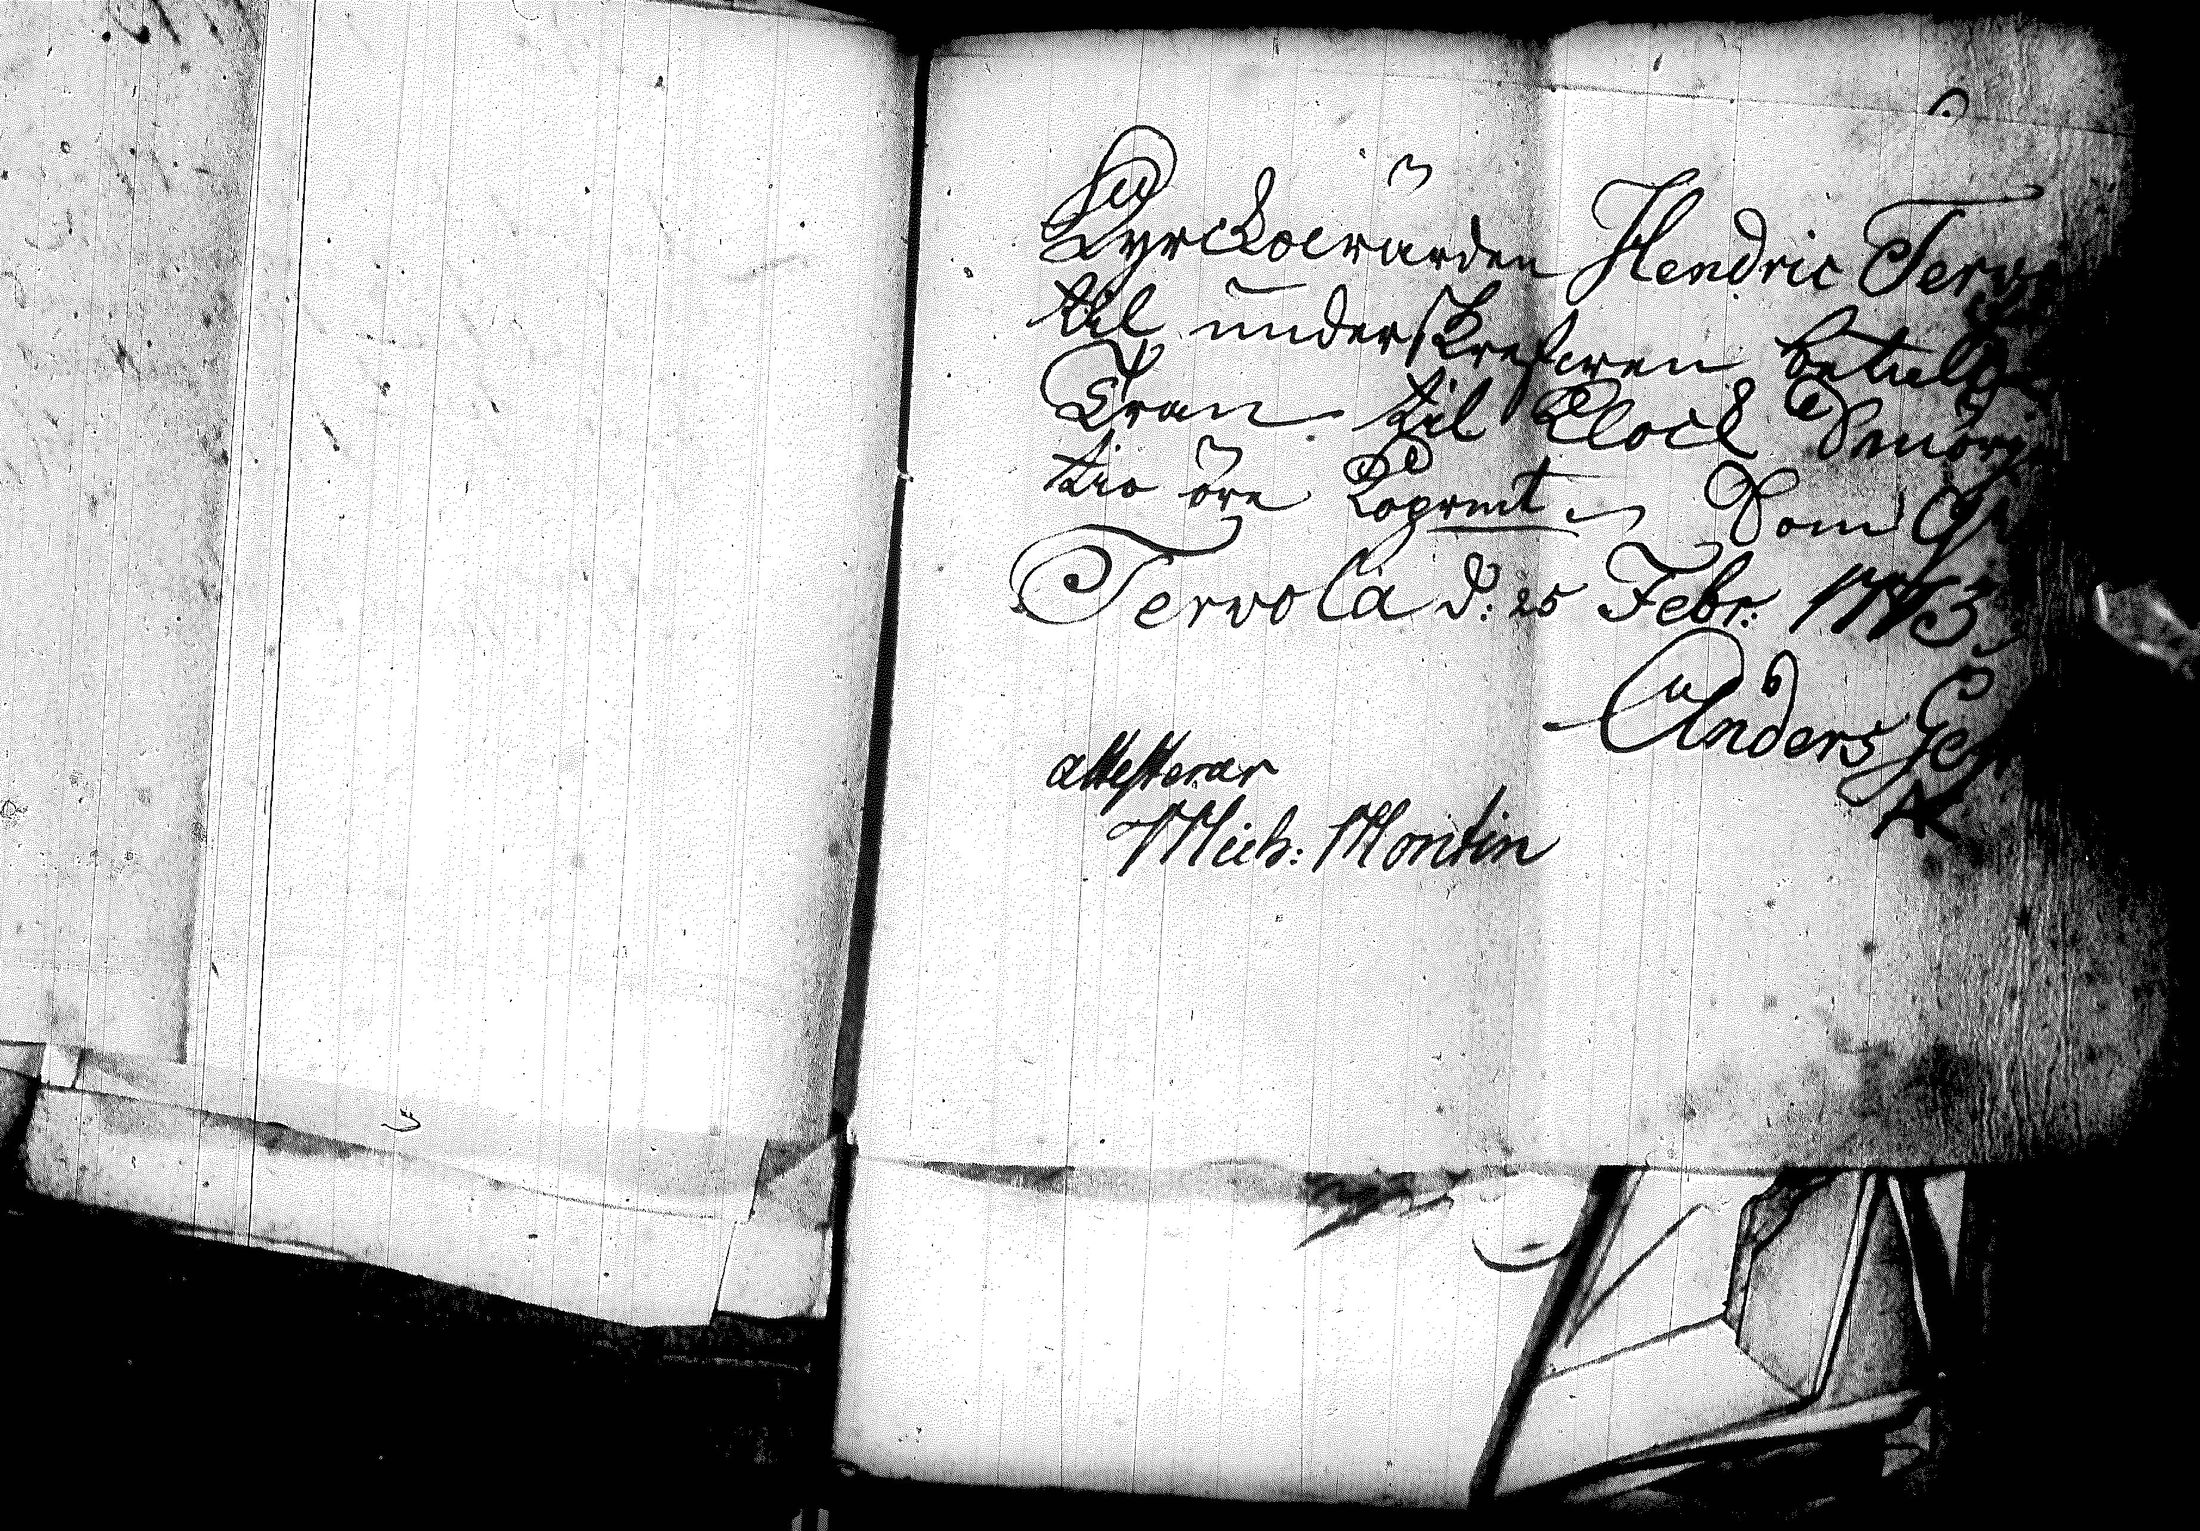 Kyrckowärden Hendric Terv
til underskrefwen betalt
Tran til Klock Smörj
tio öre Koprmt Som
Tervola d: 25 Febr: 1773
Anders
attesterar
Mich: Montin